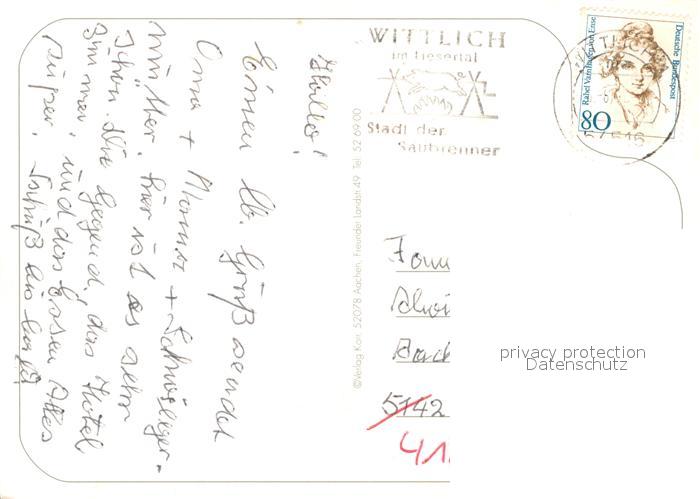 Hallo!
Einen lb. Gruß sendet
Oma + Mamma + Schwieger-
mutter. hier ist es sehr
schön. Die Gegend, das Hotel
Zimmer, und das Essen Alles
super. Tschüß bis bald
©Verlag Korr, 52078 Aachen, Freunder Landstr. 49 Tel. 52 69 00
WITTLICH
im Liesertal
Stadt der
Säubrenner
Rahel Varnhagen von Ense
Deutsche Bundespost
80
Fam
5142
41
privacy protection
Datenschutz